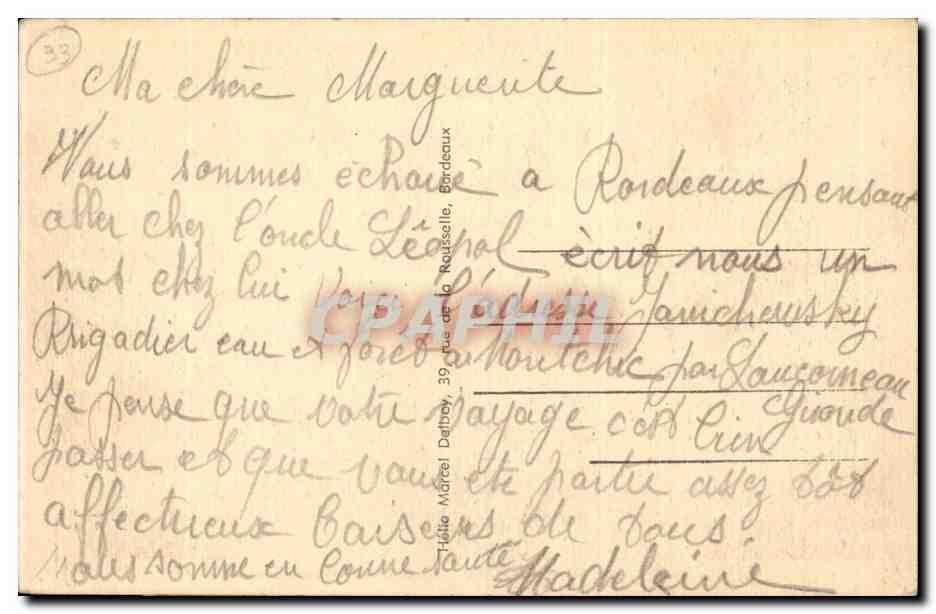 33
Ma chère Marguerite
Nous sommes échoué a Bordeaux pensant
aller chez l'oncle Léopol écrit nous un
mot chez lui l'adresse Janichewsky
Brigadier eau et foret a Montchic par Lancomeau
Gironde
Je pense que votre voyage c'est bien
passer et que vous ete partie assez tôt
affectueux baisers de tous.
Nous somme en bonne santé
Madeleine
Hélio Marcel Delboy, 39, rue de la Rousselle, Bordeaux
CPAPHIL